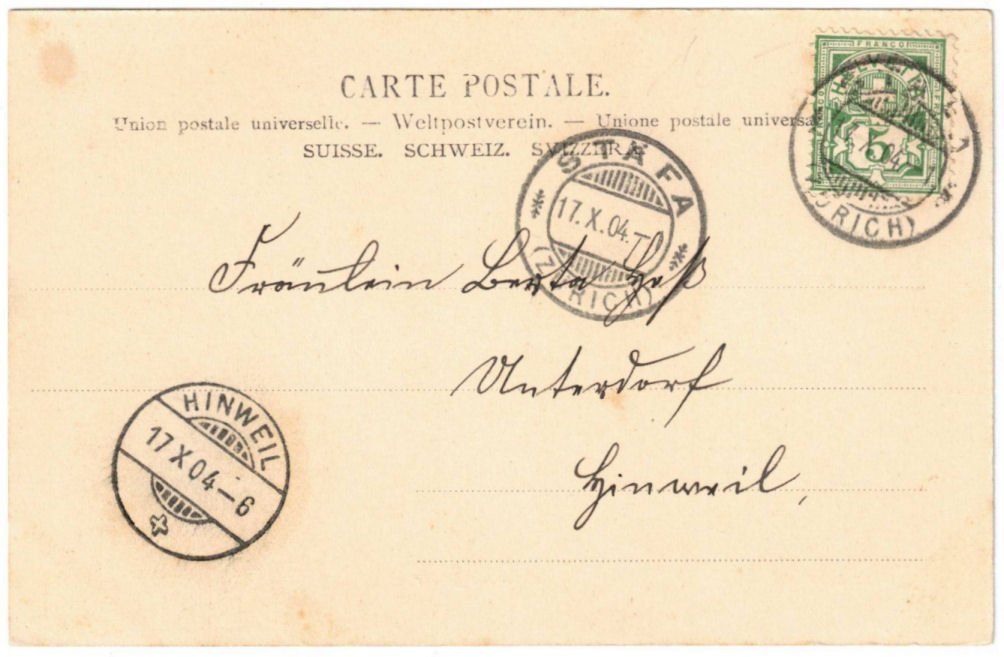 CARTE POSTALE.
Union postale universelle. — Weltpostverein. — Unione postale universa
SUISSE. SCHWEIZ. SVIZZERA.
FRANCO
HELVETIA
5
(ZÜRICH)
STÄFA
17. X. 04.
(ZÜRICH)
Fräulein Berta Heß
Unterdorf
Hinweil,
HINWEIL
17 X 04–6